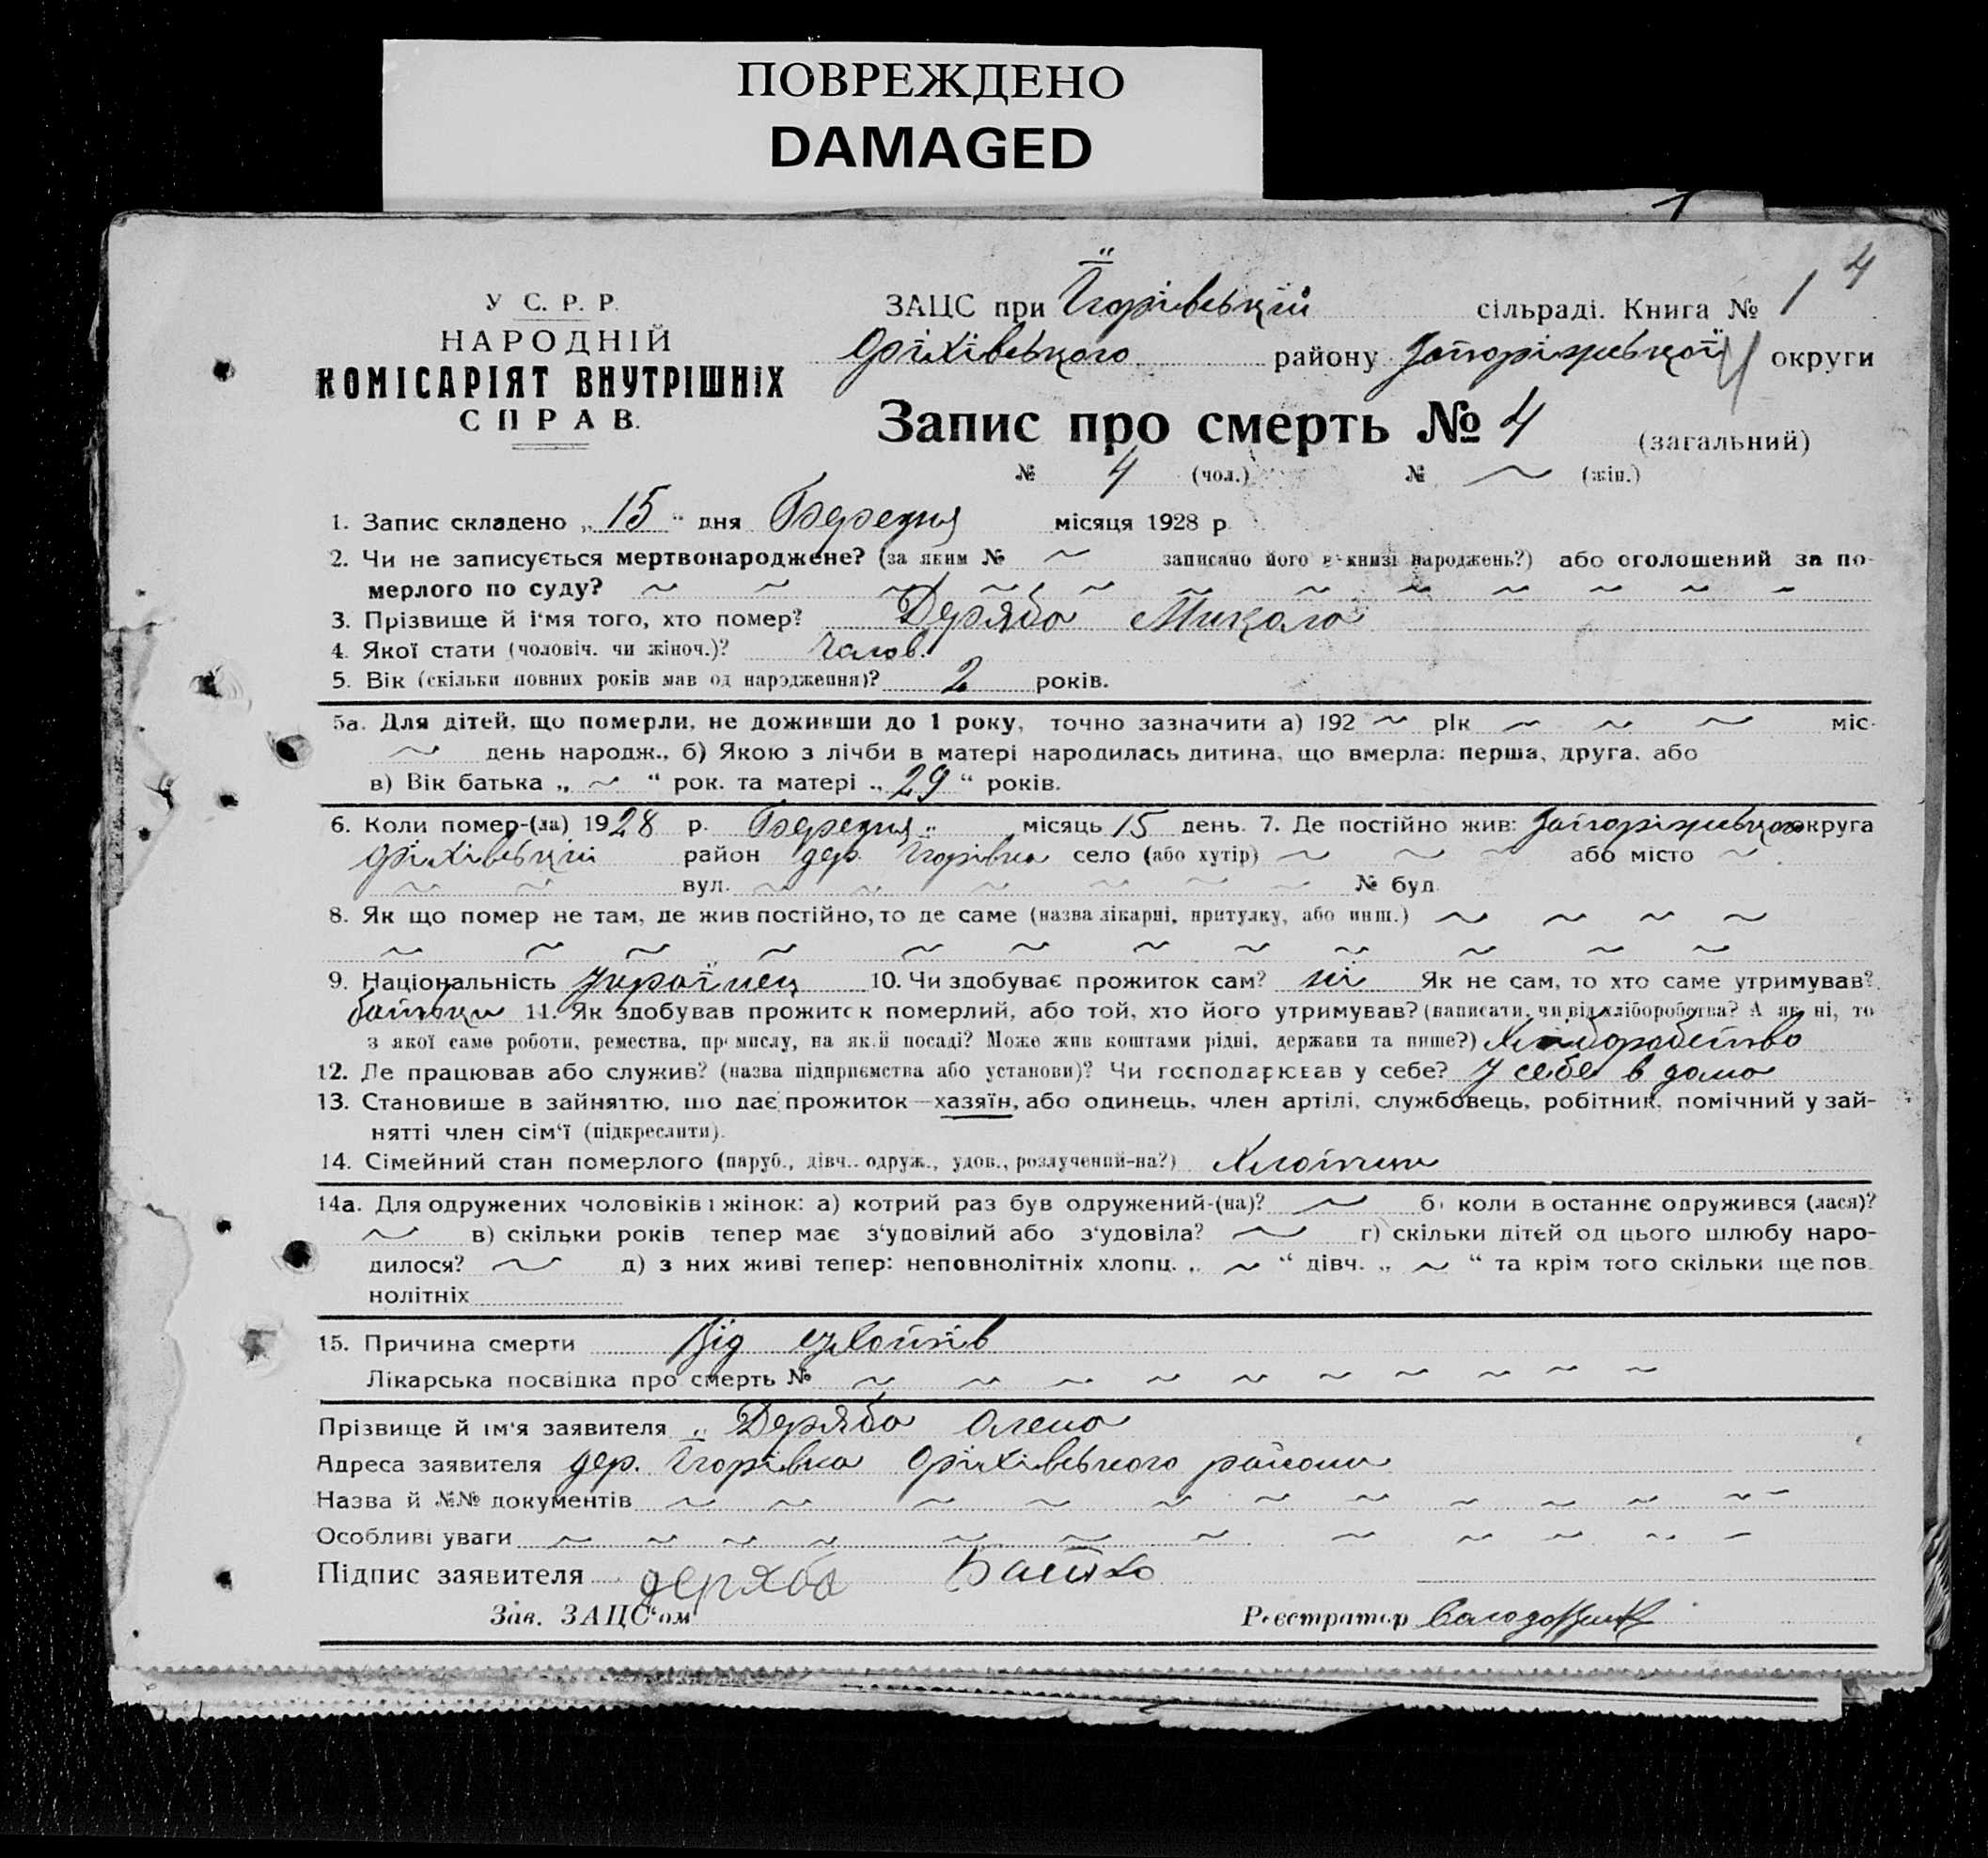 ПОВРЕЖДЕНО
DAMAGED
1
4
У С. Р. Р.
НАРОДНІЙ
КОМІСАРІЯТ ВНУТРІШНІХ
СПРАВ.
ЗАЦС при Ігорівській сільраді. Книга № 1
Оріхівського району Запоріжської округи
Запис про смерть № 4 (загальний)
№ 4 (чол.) № ~ (жін.)
1. Запис складено „15“ дня Березня місяця 1928 р.
2. Чи не записується мертвонароджене? (за яким № ~ записано його в книзі народжень?) або оголошений за по-
мерлого по суду? ~ ~ ~ ~ ~ ~ ~ ~ ~ ~ ~ ~ ~
3. Прізвище й ім‘я того, хто помер? Деряба Микола
4. Якої стати (чоловіч. чи жіноч.)? Чолов.
5. Вік (скільки повних років мав од народження)? 2 років.
5а. Для дітей, що померли, не доживши до 1 року, точно зазначити а) 192 ~ рік ~ ~ ~ міс.
~ день народж., б) Якою з лічби в матері народилась дитина, що вмерла: перша, друга, або
в) Вік батька „ ~ “ рок. та матері „29“ років.
6. Коли помер-(ла) 1928 р. Березня місяць 15 день. 7. Де постійно жив: Запоріжська округа
Оріхівський район дер. Ігорівка село (або хутір) ~ ~ ~ або місто ~
~ ~ вул. ~ ~ ~ ~ ~ ~ № буд.
8. Як що помер не там, де жив постійно, то де саме (назва лікарні, притулку, або инш.) ~ ~ ~ ~
~ ~ ~ ~ ~ ~ ~ ~ ~ ~ ~ ~
9. Національність Українець 10. Чи здобуває прожиток сам? ні Як не сам, то хто саме утримував?
батьки 11. Як здобував прожиток померлий, або той, хто його утримував? (написати, чи від хліборобства? А як ні, то
з якої саме роботи, ремества, промислу, на якій посаді? Може жив коштами рідні, держави та инше?) Хліборобство
12. Де працював або служив? (назва підприємства або установи)? Чи господарював у себе? У себе в дома
13. Становище в зайняттю, що дає прожиток—хазяїн, або одинець, член артілі, службовець, робітник, помічний у зай-
нятті член сім‘ї (підкреслити).
14. Сімейний стан померлого (паруб., дівч., одруж., удов., розлучений-на?) Хлопчик
14а. Для одружених чоловіків і жінок: а) котрий раз був одружений-(на)? ~ б) коли востаннє одружився (лася)?
~ в) скільки років тепер має з‘удовілий або з‘удовіла? ~ г) скільки дітей од цього шлюбу наро-
дилося? ~ д) з них живі тепер: неповнолітніх хлопц. „ ~ “ дівч. „ ~ “ та крім того скільки ще пов.
нолітніх
15. Причина смерти Від
Лікарська посвідка про смерть № ~ ~ ~ ~ ~ ~ ~ ~ ~ ~
Прізвище й ім‘я заявителя „ Деряба Олена
Адреса заявителя дер. Ігорівка Оріхівського району
Назва й №№ документів ~ ~ ~ ~ ~ ~ ~ ~ ~ ~ ~ ~
Особливі уваги ~ ~ ~ ~ ~ ~ ~ ~ ~ ~ ~ ~
Підпис заявителя деряба
Зав. ЗАЦС‘ом Реєстратор